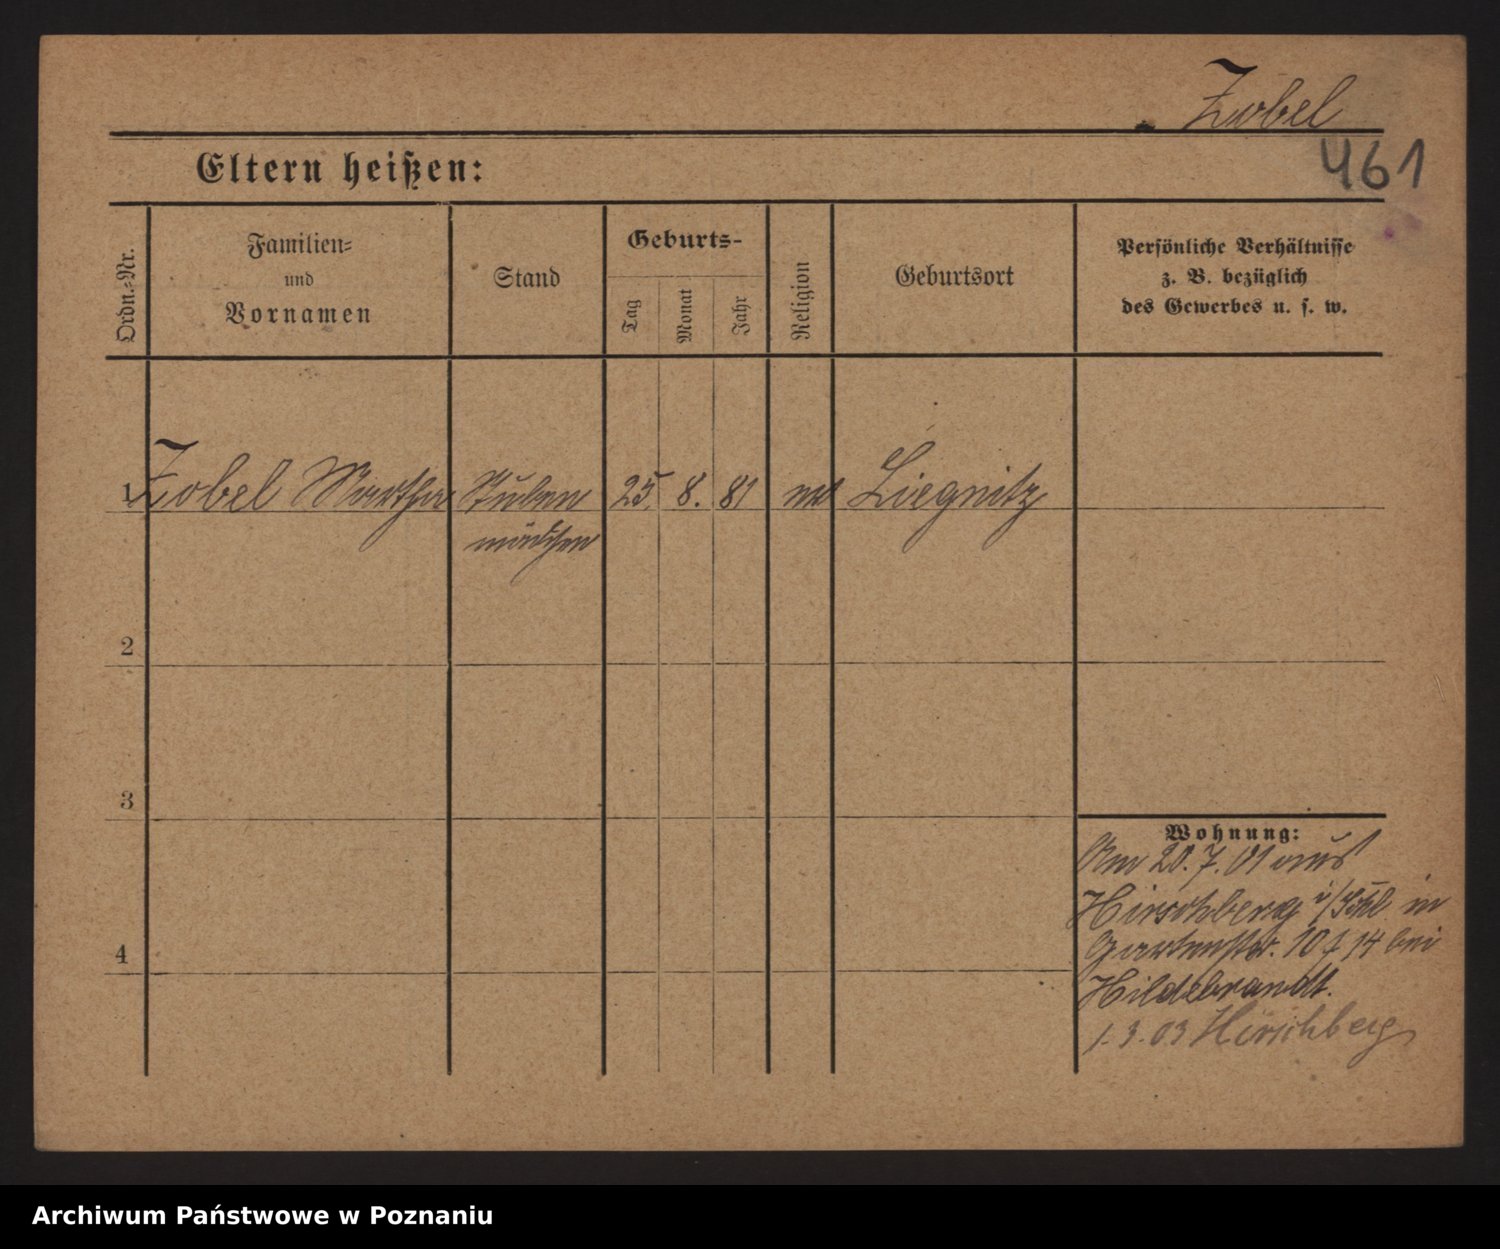 Zobel
461
Eltern heißen:
Ordn.-Nr.
Familien-
und
Vornamen
Stand
Geburts-
Tag
Monat
Jahr
Religion
Geburtsort
Persönliche Verhältnisse
z. B. bezüglich
des Gewerbes u. s. w.
1 Zobel Martha Stuben 25. 8. 81 Liegnitz
mädchen
2
3
4
Wohnung:
Am 20.7.01 aus
Hirschberg i/Schl in
Gartenstr. 10 14 bei
Hildebrandt.
1.3.03 Hirschberg
Archiwum Państwowe w Poznaniu